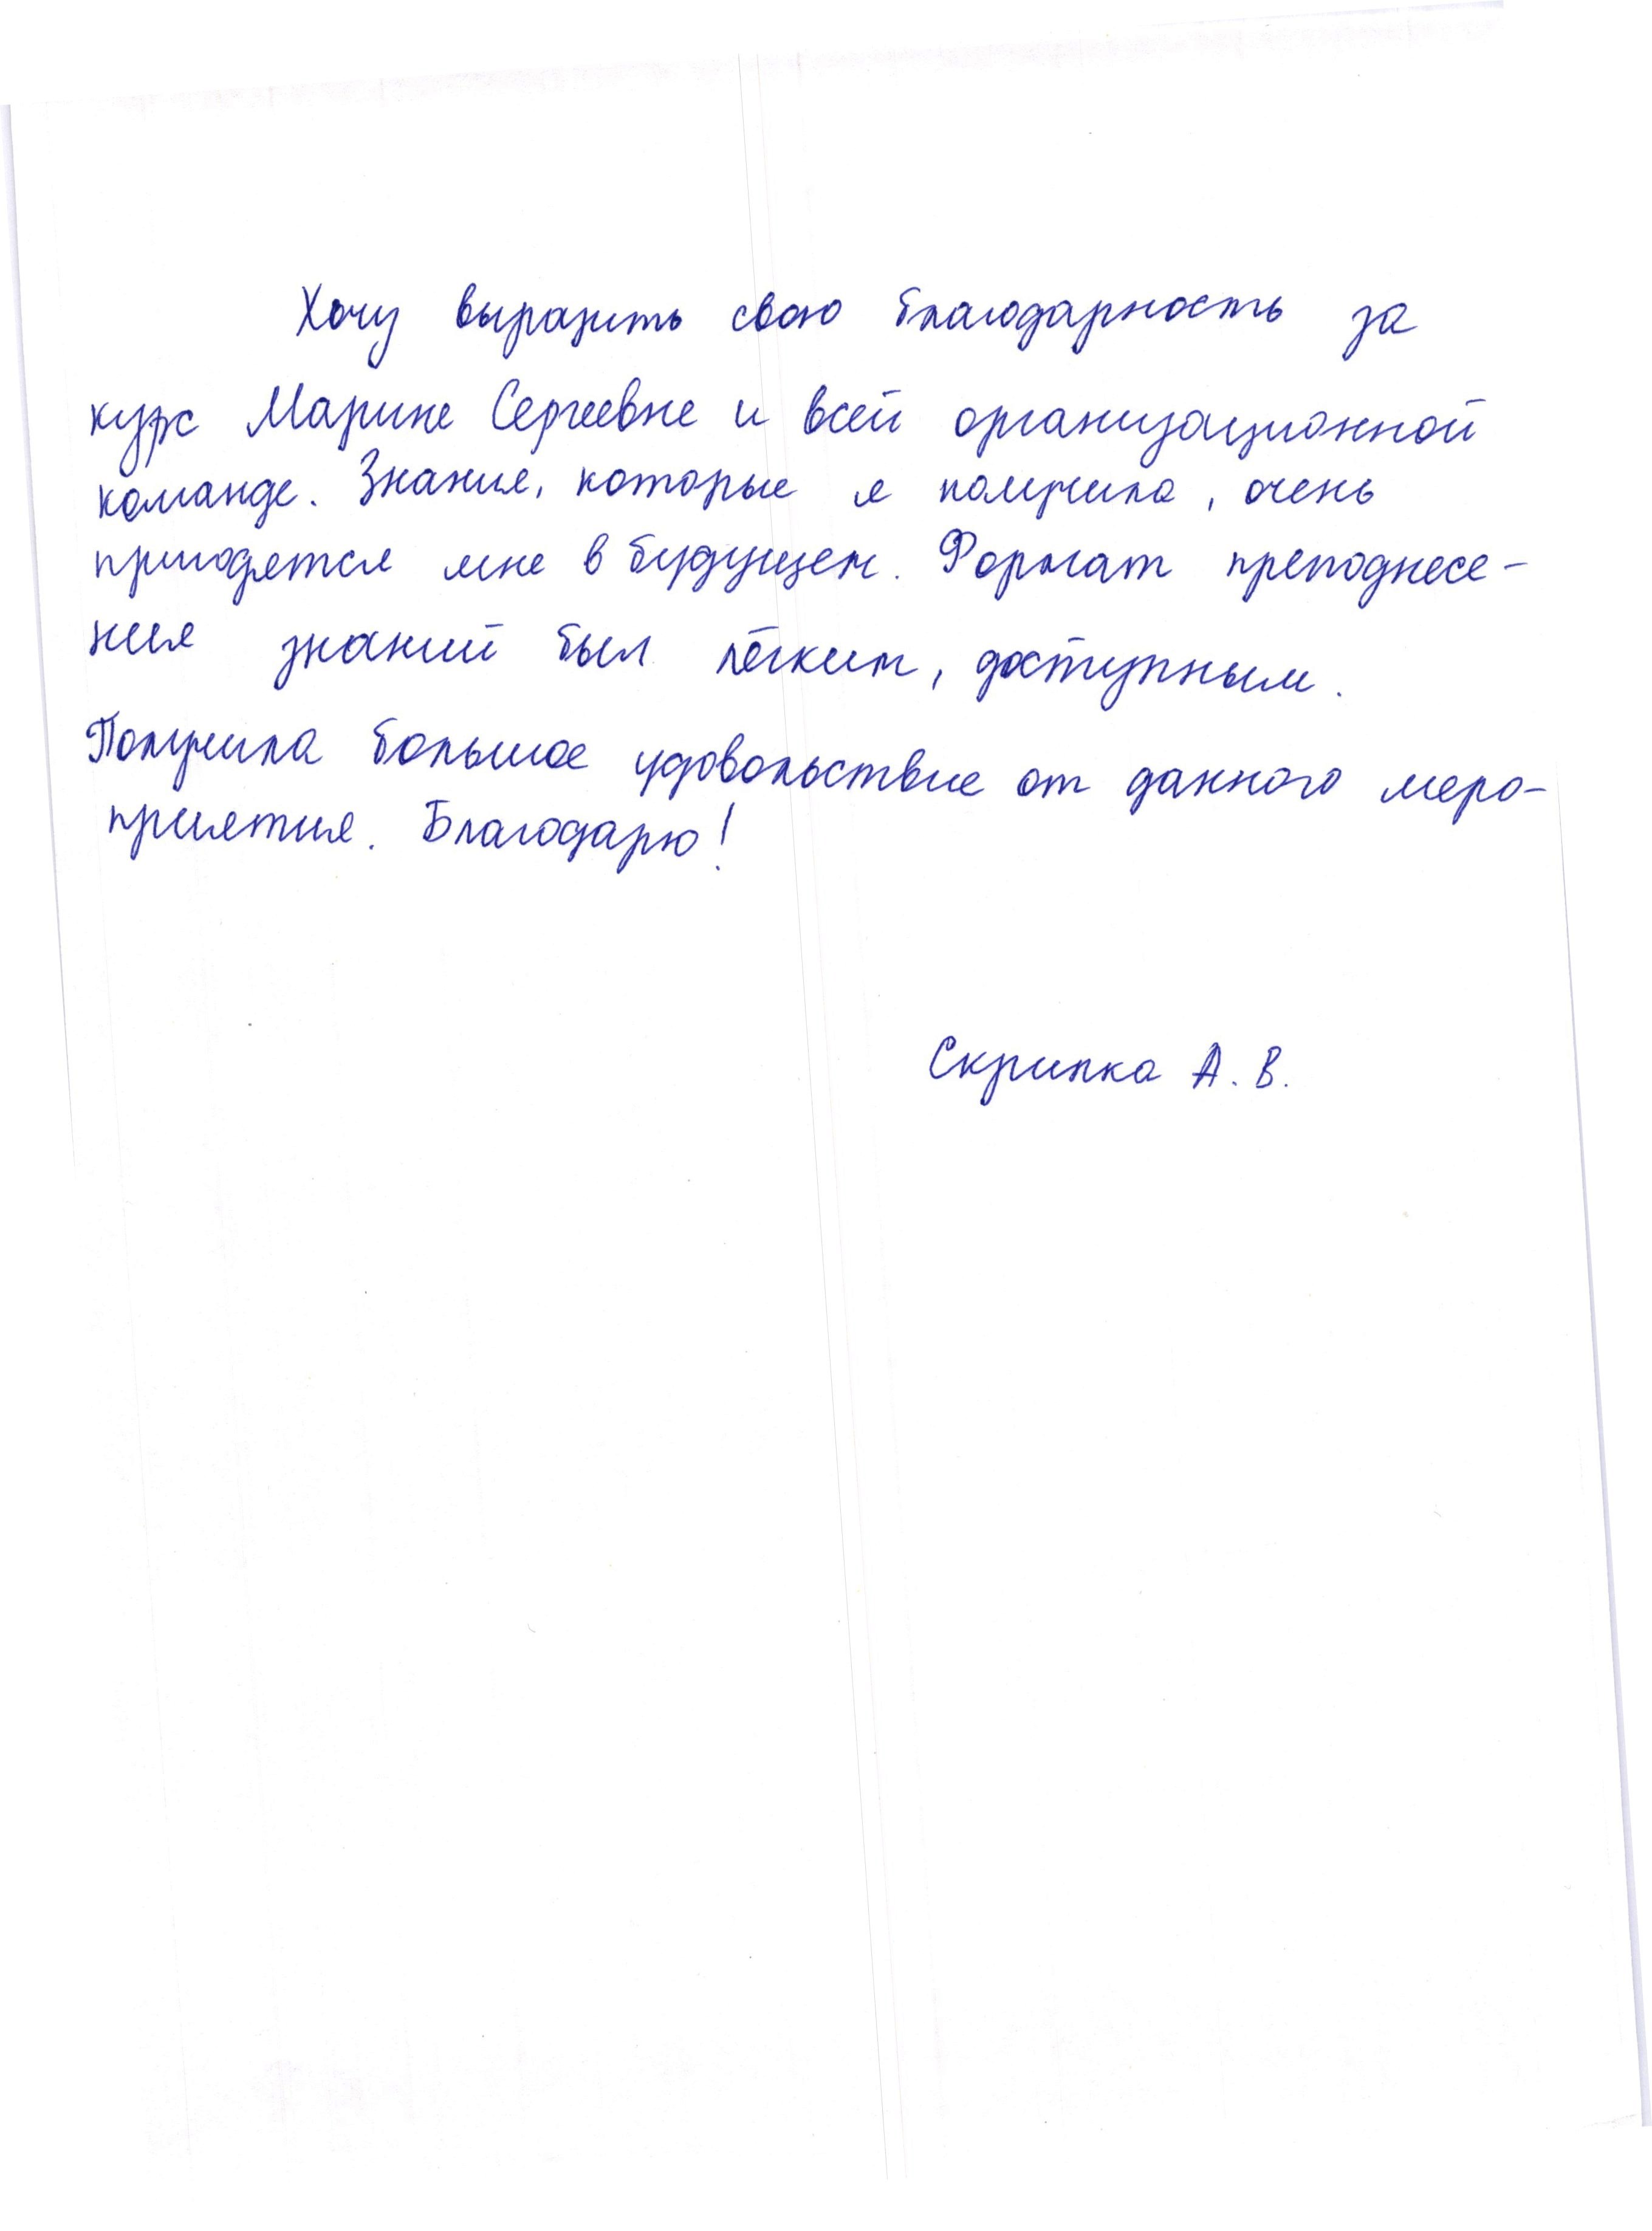 Хочу выразить свою благодарность за
курс Марине Сергеевне и всей организационной
команде. Знания, которые я получила, очень
пригодятся мне в будущем. Формат преподнесе-
ния знаний был лёгким, доступным.
Получила большое удовольствие от данного меро-
приятия. Благодарю!
Скрипка А. В.